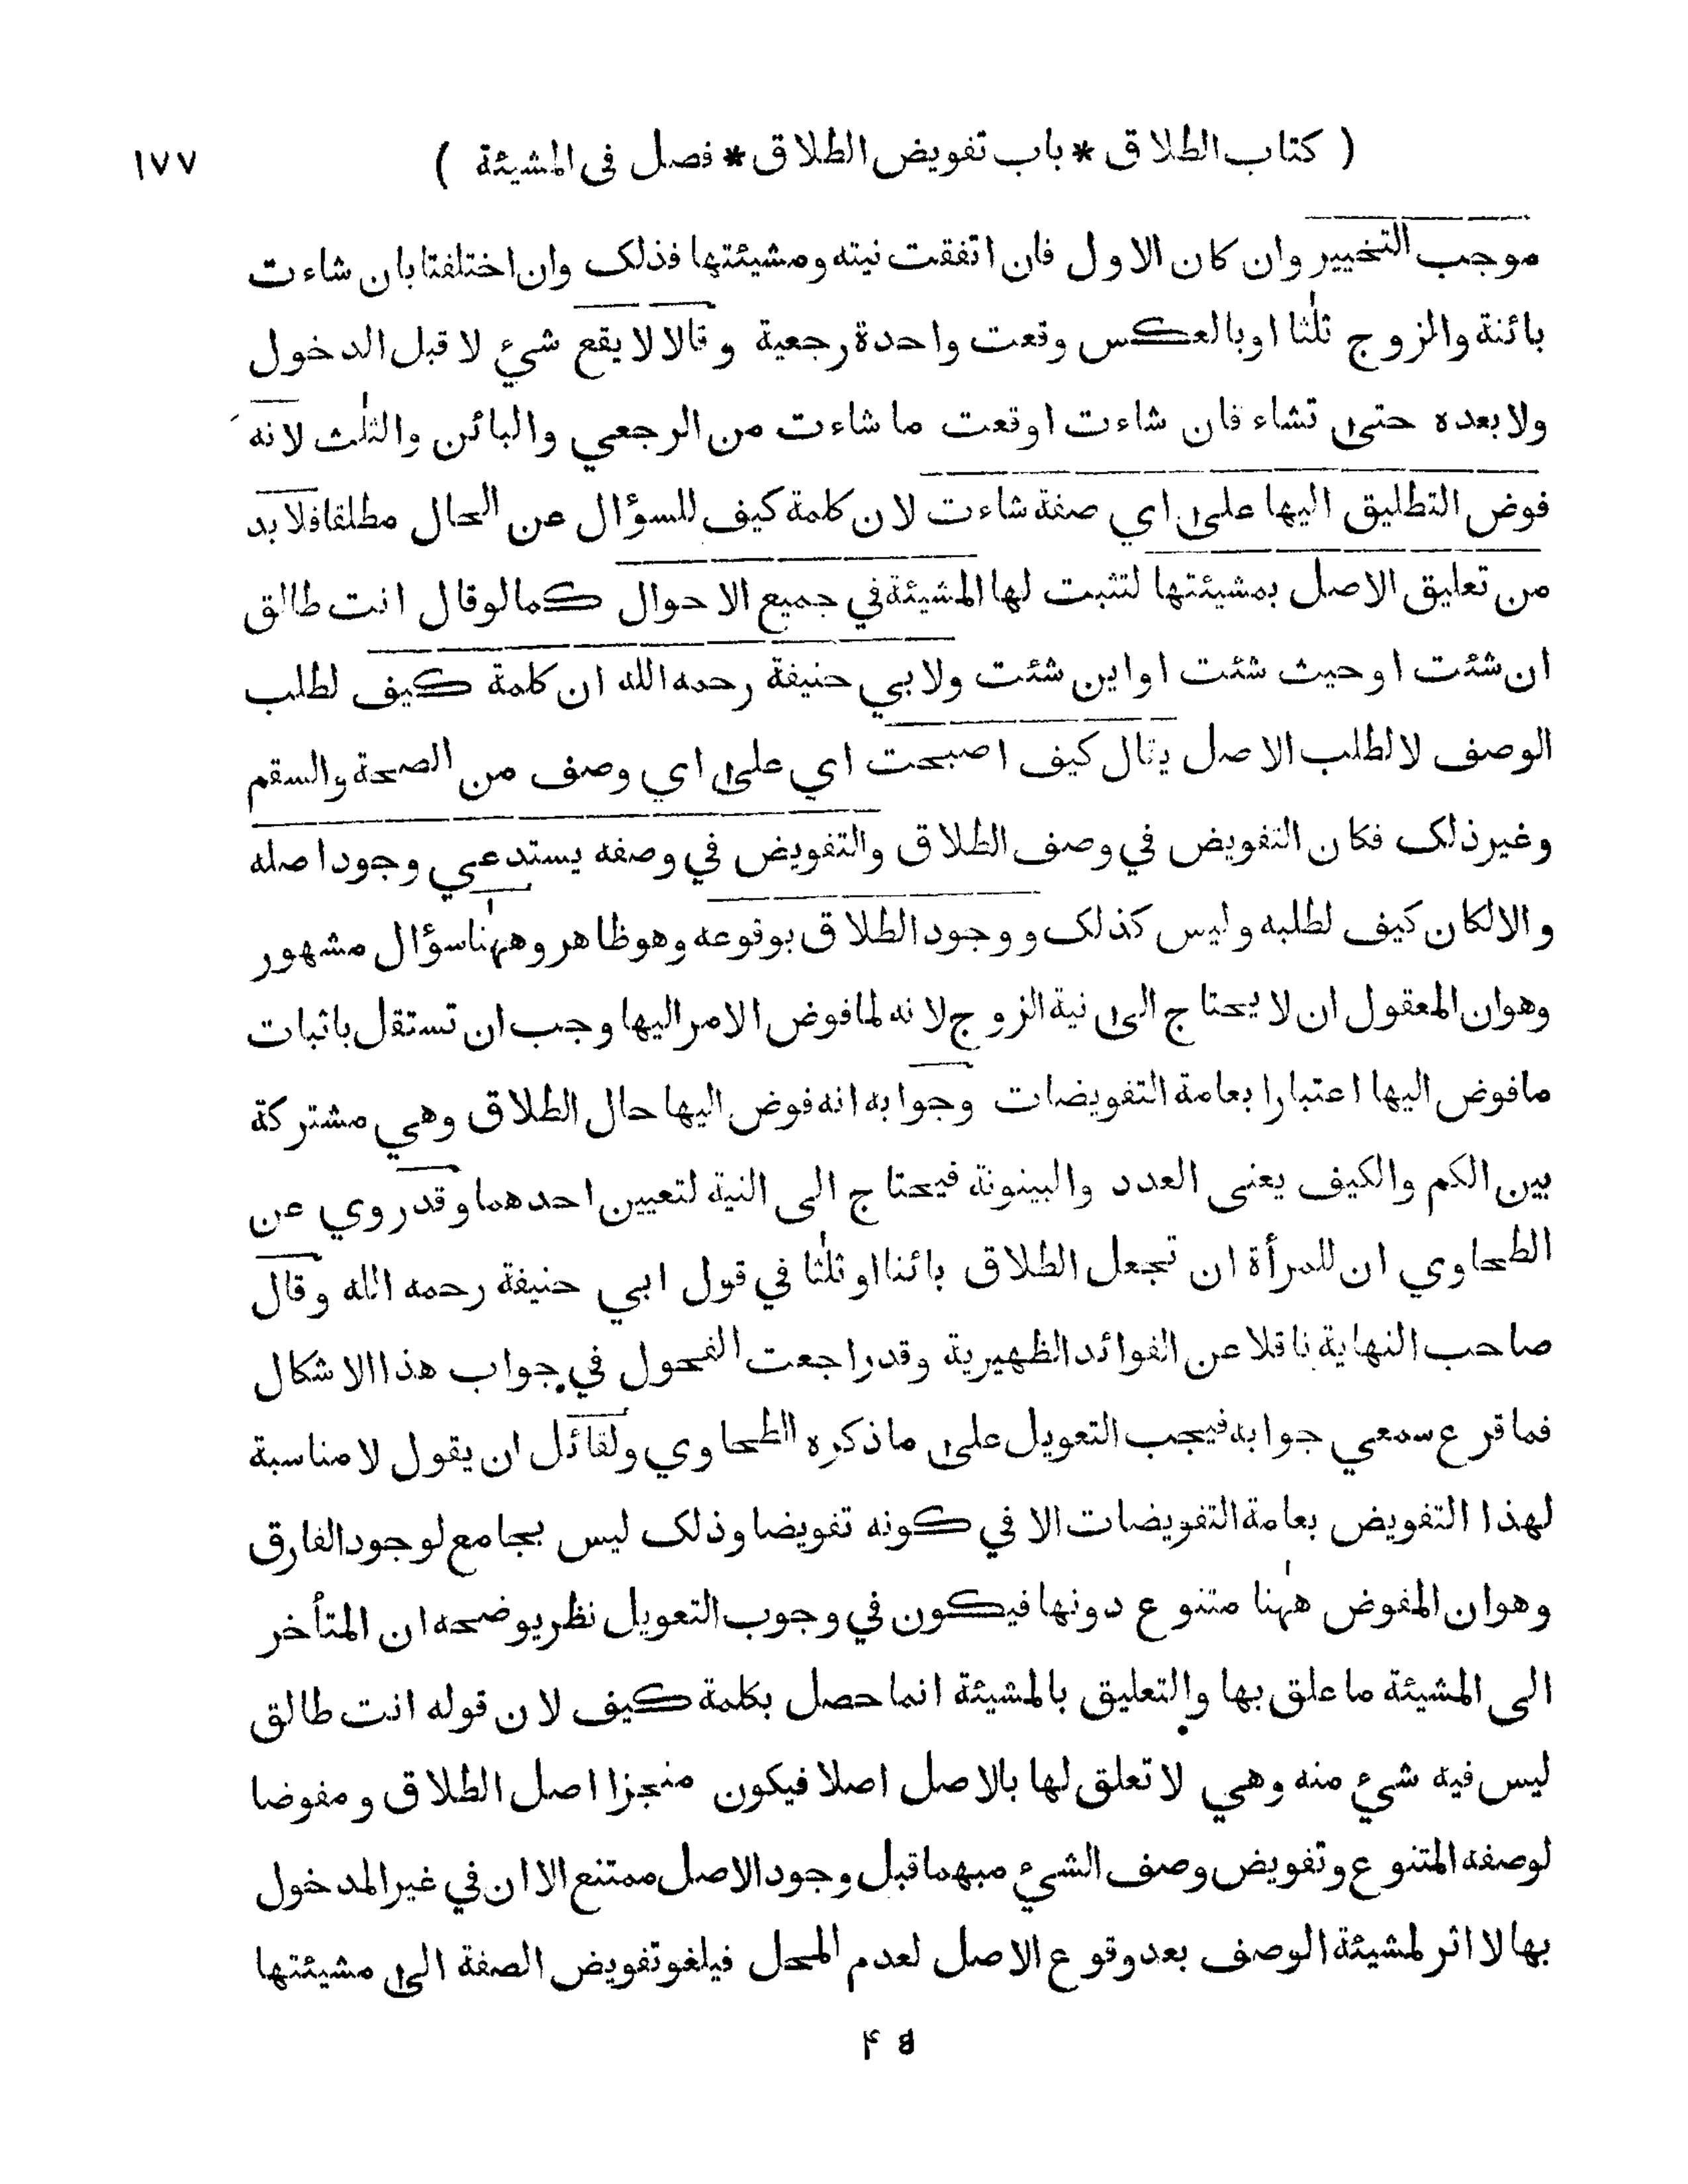 ( كتاب الطلاق * باب تفويض الطلاق * فصل فى المشيئة ) ١٧٧
موجب التخيير وان كان الاول فان اتفقت نيته ومشيئتها فذلك وان اختلفتا بان شاءت
بائنة والزوج ثلٰثا او بالعكس وقعت واحدة رجعية وقالا لا يقع شيء لا قبل الدخول
ولا بعده حتى تشاء فان شاءت اوقعت ما شاءت من الرجعي والبائن والثلٰث لانه
فوض التطليق اليها على اي صفة شاءت لان كلمة كيف للسؤال عن الحال مطلقا فلا بد
من تعليق الاصل بمشيئتها لتثبت لها المشيئة في جميع الاحوال كما لو قال انت طالق
ان شئت او حيث شئت او اين شئت ولابي حنيفة رحمه الله ان كلمة كيف لطلب
الوصف لا لطلب الاصل يقال كيف اصبحت اي على اي وصف من الصحة والسقم
وغير ذلك فكان التفويض في وصف الطلاق والتفويض في وصفه يستدعي وجود اصله
والا لكان كيف لطلبه وليس كذلك ووجود الطلاق بوقوعه وهو ظاهر وههٰنا سؤال مشهور
وهو ان المعقول ان لا يحتاج الى نية الزوج لانه لما فوض الامر اليها وجب ان تستقل باثبات
ما فوض اليها اعتبارا بعامة التفويضات وجوابه انه فوض اليها حال الطلاق وهي مشتركة
بين الكم والكيف يعنى العدد والبينونة فيحتاج الى النية لتعيين احدهما وقد روي عن
الطحاوي ان للمرأة ان تجعل الطلاق بائنا او ثلٰثا في قول ابي حنيفة رحمه الله وقال
صاحب النهاية ناقلا عن الفوائد الظهيرية وقد راجعت الفحول في جواب هذا الاشكال
فما قرع سمعي جوابه فيجب التعويل على ما ذكره الطحاوي ولقائل ان يقول لا مناسبة
لهذا التفويض بعامة التفويضات الا في كونه تفويضا وذلك ليس بجامع لوجود الفارق
وهو ان المفوض ههٰنا متنوع دونها فيكون في وجوب التعويل نظر يوضحه ان المتأخر
الى المشيئة ما علق بها والتعليق بالمشيئة انما حصل بكلمة كيف لان قوله انت طالق
ليس فيه شيء منه وهي لا تعلق لها بالاصل اصلا فيكون منجزا اصل الطلاق ومفوضا
لوصفه المتنوع وتفويض وصف الشيء مبهما قبل وجود الاصل ممتنع الا ان في غير المدخول
بها لا اثر لمشيئة الوصف بعد وقوع الاصل لعدم المحل فيلغو تفويض الصفة الى مشيئتها